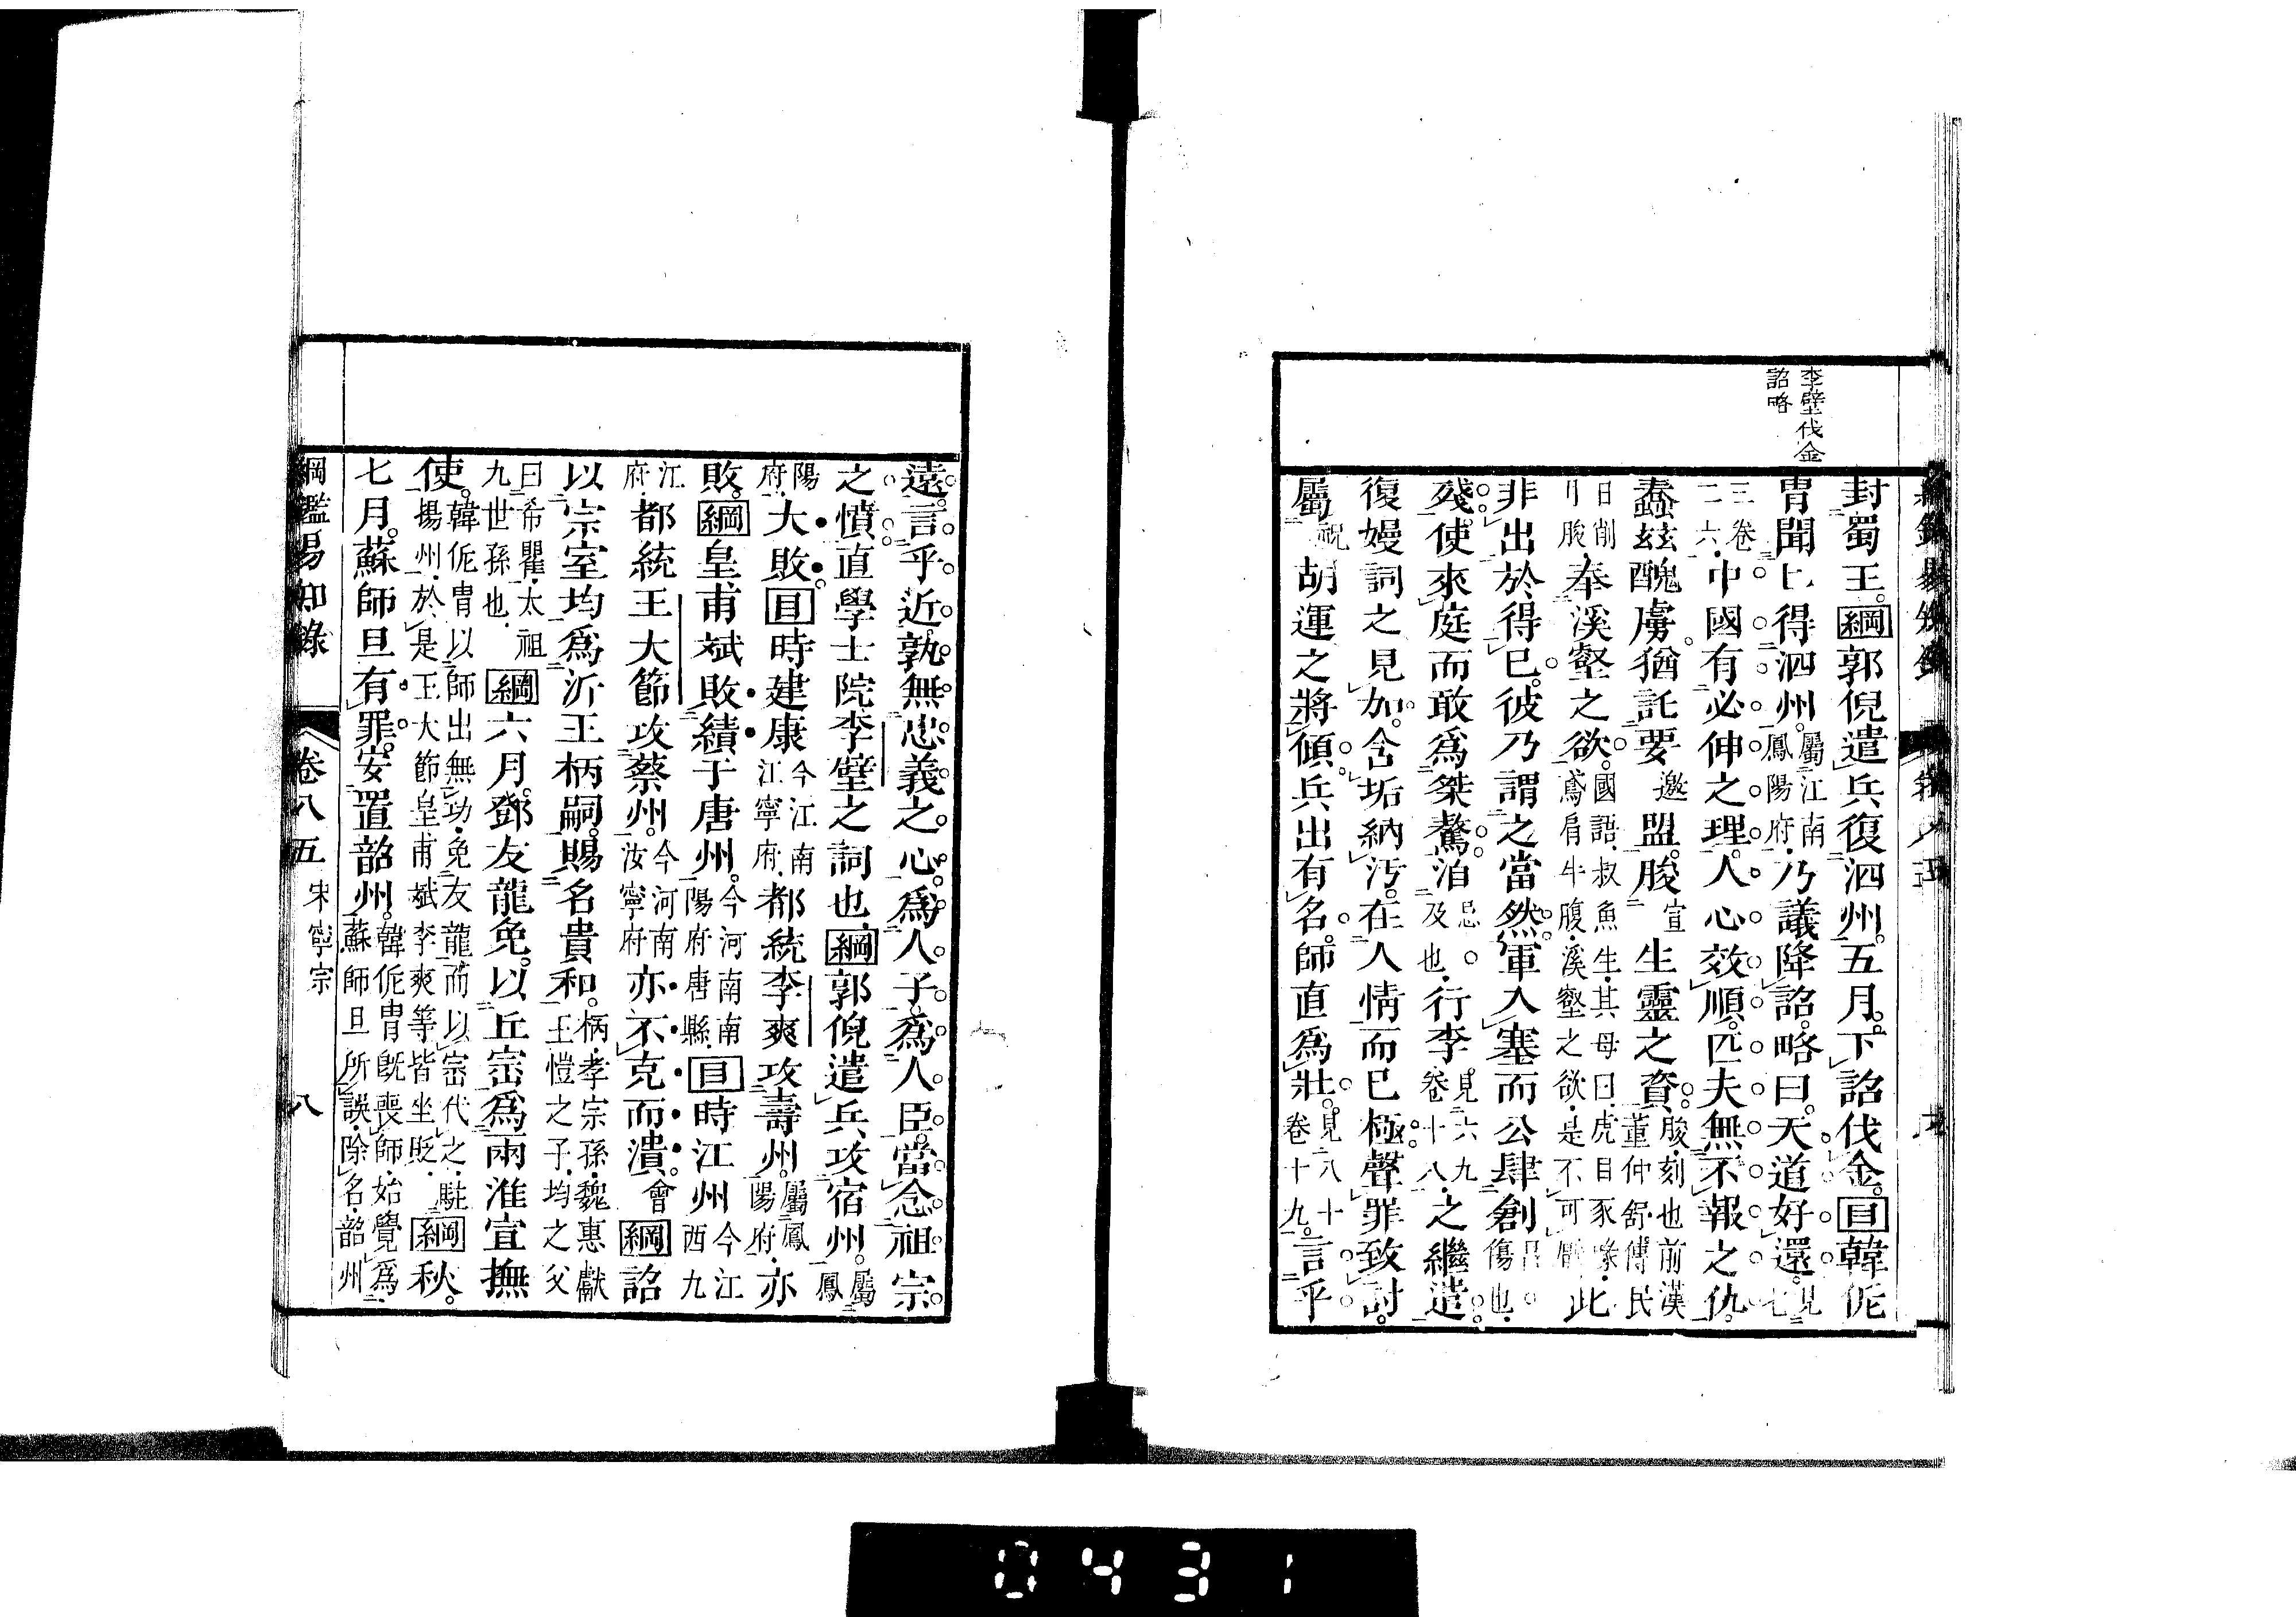 李壁伐金
詔略
封蜀王。綱郭倪遣兵復泗州。五月。下詔伐金。目韓侂
冑聞已得泗州。屬江南鳳陽府。乃議降詔。略曰。天道好還。見七
三卷二六。中國有必伸之理。人心效順。匹夫無不報之仇。
蠢玆醜虜。猶託要邀盟。朘宣生靈之資。朘刻也前漢董仲舒傳民
日削月朘。奉溪壑之欲。國語叔魚生其母曰虎目豕喙鳶肩牛腹溪壑之欲是不可饜此
非出於得已。彼乃謂之當然。軍入塞而公肆創傷也。
殘。使來庭而敢爲桀驁。洎忌及也。行李見六九卷十八。之繼遣。
復嫚詞之見加。含垢納汚。在人情而已極。聲罪致討。
屬祝胡運之將傾。兵出有名。師直爲壯。見八十卷十九。言乎
遠。言乎近。孰無忠義之心。爲人子。爲人臣。當念祖宗
之憤。直學士院李壁之詞也。綱郭倪遣兵攻宿州。屬鳳
陽府。大敗。目時建康今江南江寧府。都統李爽攻壽州。屬鳳陽府。亦
敗。綱皇甫斌敗績于唐州。今河南南陽府唐縣。目時江州今江西九
江府。都統王大節攻蔡州。今河南汝寧府亦不克而潰。會綱詔
以宗室均爲沂王柄嗣。賜名貴和。柄孝宗孫魏惠獻王愷之子均之父
曰希瞿太祖九世孫也。綱六月。鄧友龍免。以丘崈爲兩淮宣撫
使。韓侂冑以師出無功免友龍而以崈代之駐揚州於是王大節皇甫斌李爽等皆坐貶。綱秋。
七月。蘇師旦有罪。安置韶州。韓侂冑旣喪師始覺爲蘇師旦所誤除名韶州
綱鑑易知錄　卷八五　宋寧宗　八
0431